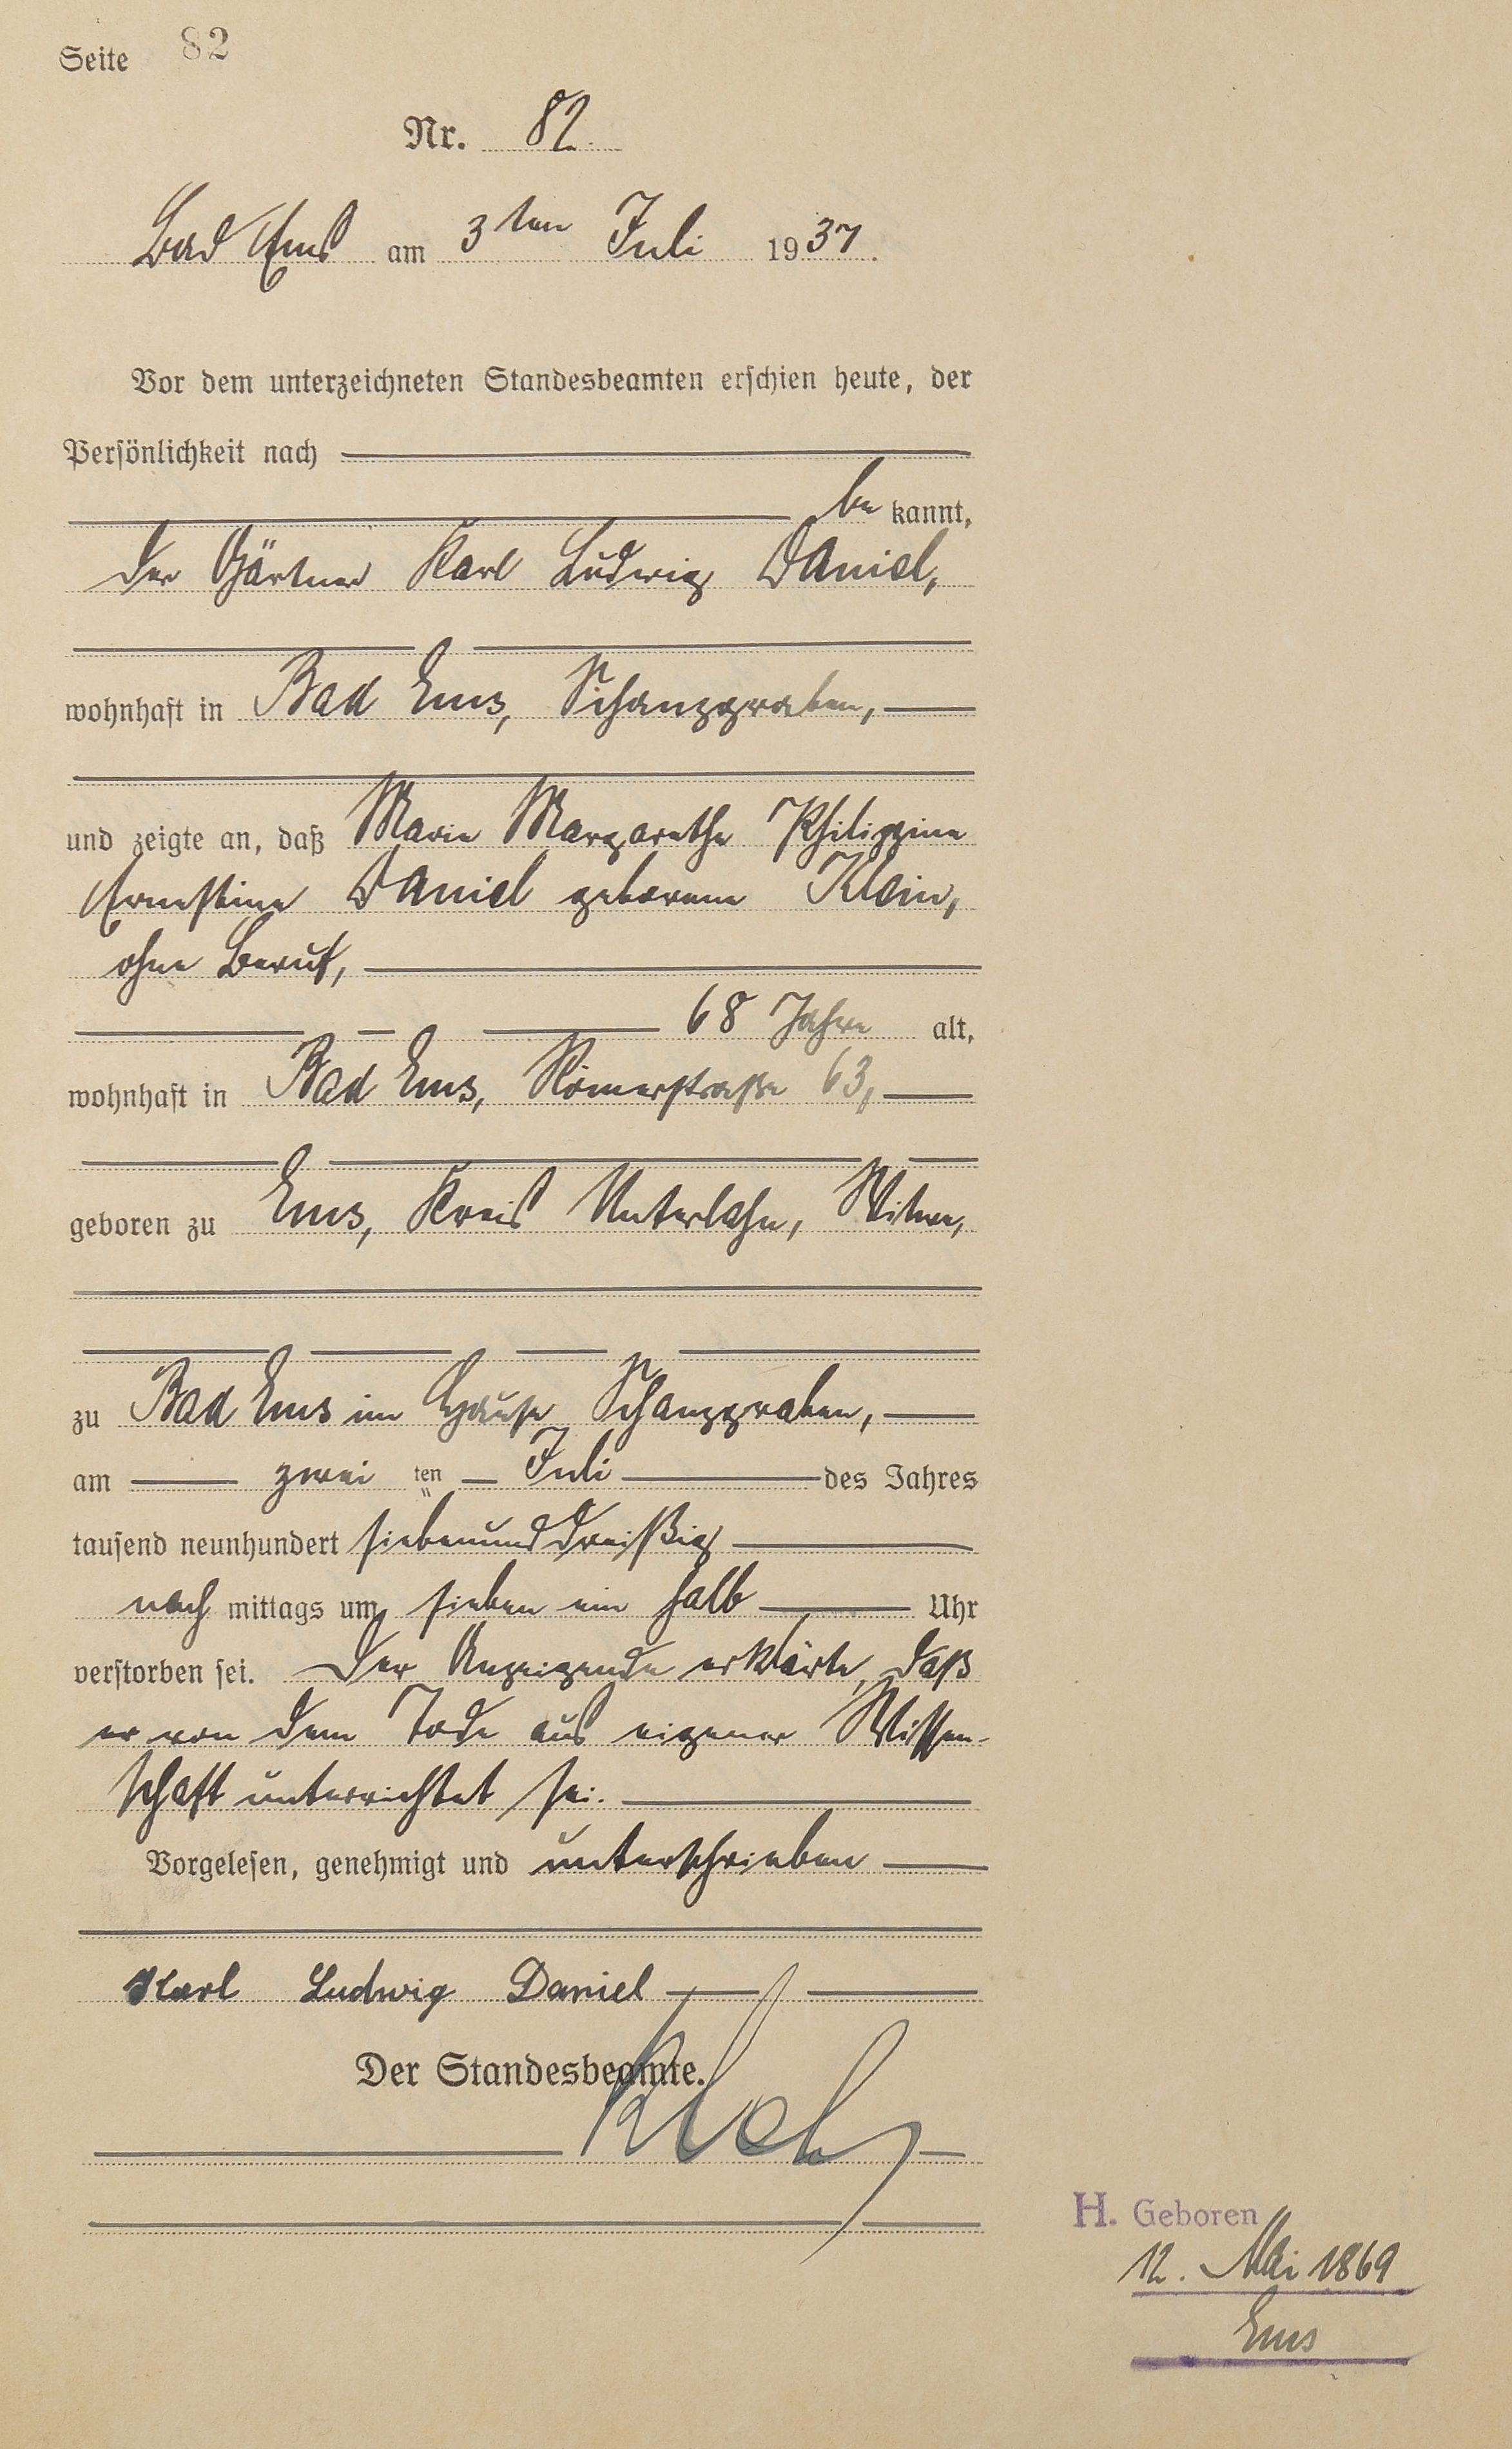 Seite 82
Nr. 82.
Bad Ems am 3ten Juli 1937.
Vor dem unterzeichneten Standesbeamten erschien heute, der
Persönlichkeit nach
be kannt,
der Gärtner Karl Ludwig Daniel,
wohnhaft in Bad Ems, Schanzgraben,
und zeigte an, daß Marie Margarethe Philippine
Ernestine Daniel geborene Klein,
ohne Beruf,
68 Jahre alt,
wohnhaft in Bad Ems, Römerstraße 63,
geboren zu Ems, Kreis Unterlahn, Witwe,
zu Bad Ems im Hause Schanzgraben,
am zwei ten Juli des Jahres
tausend neunhundert siebenunddreißig
nach mittags um sieben ein halb Uhr
verstorben sei. Der Anzeigende erklärte, daß
er von dem Tode aus eigener Wissen-
schaft unterrichtet sei.
Vorgelesen, genehmigt und unterschrieben
Karl Ludwig Daniel
Der Standesbeamte.
H. Geboren
12. Mai 1869
Ems